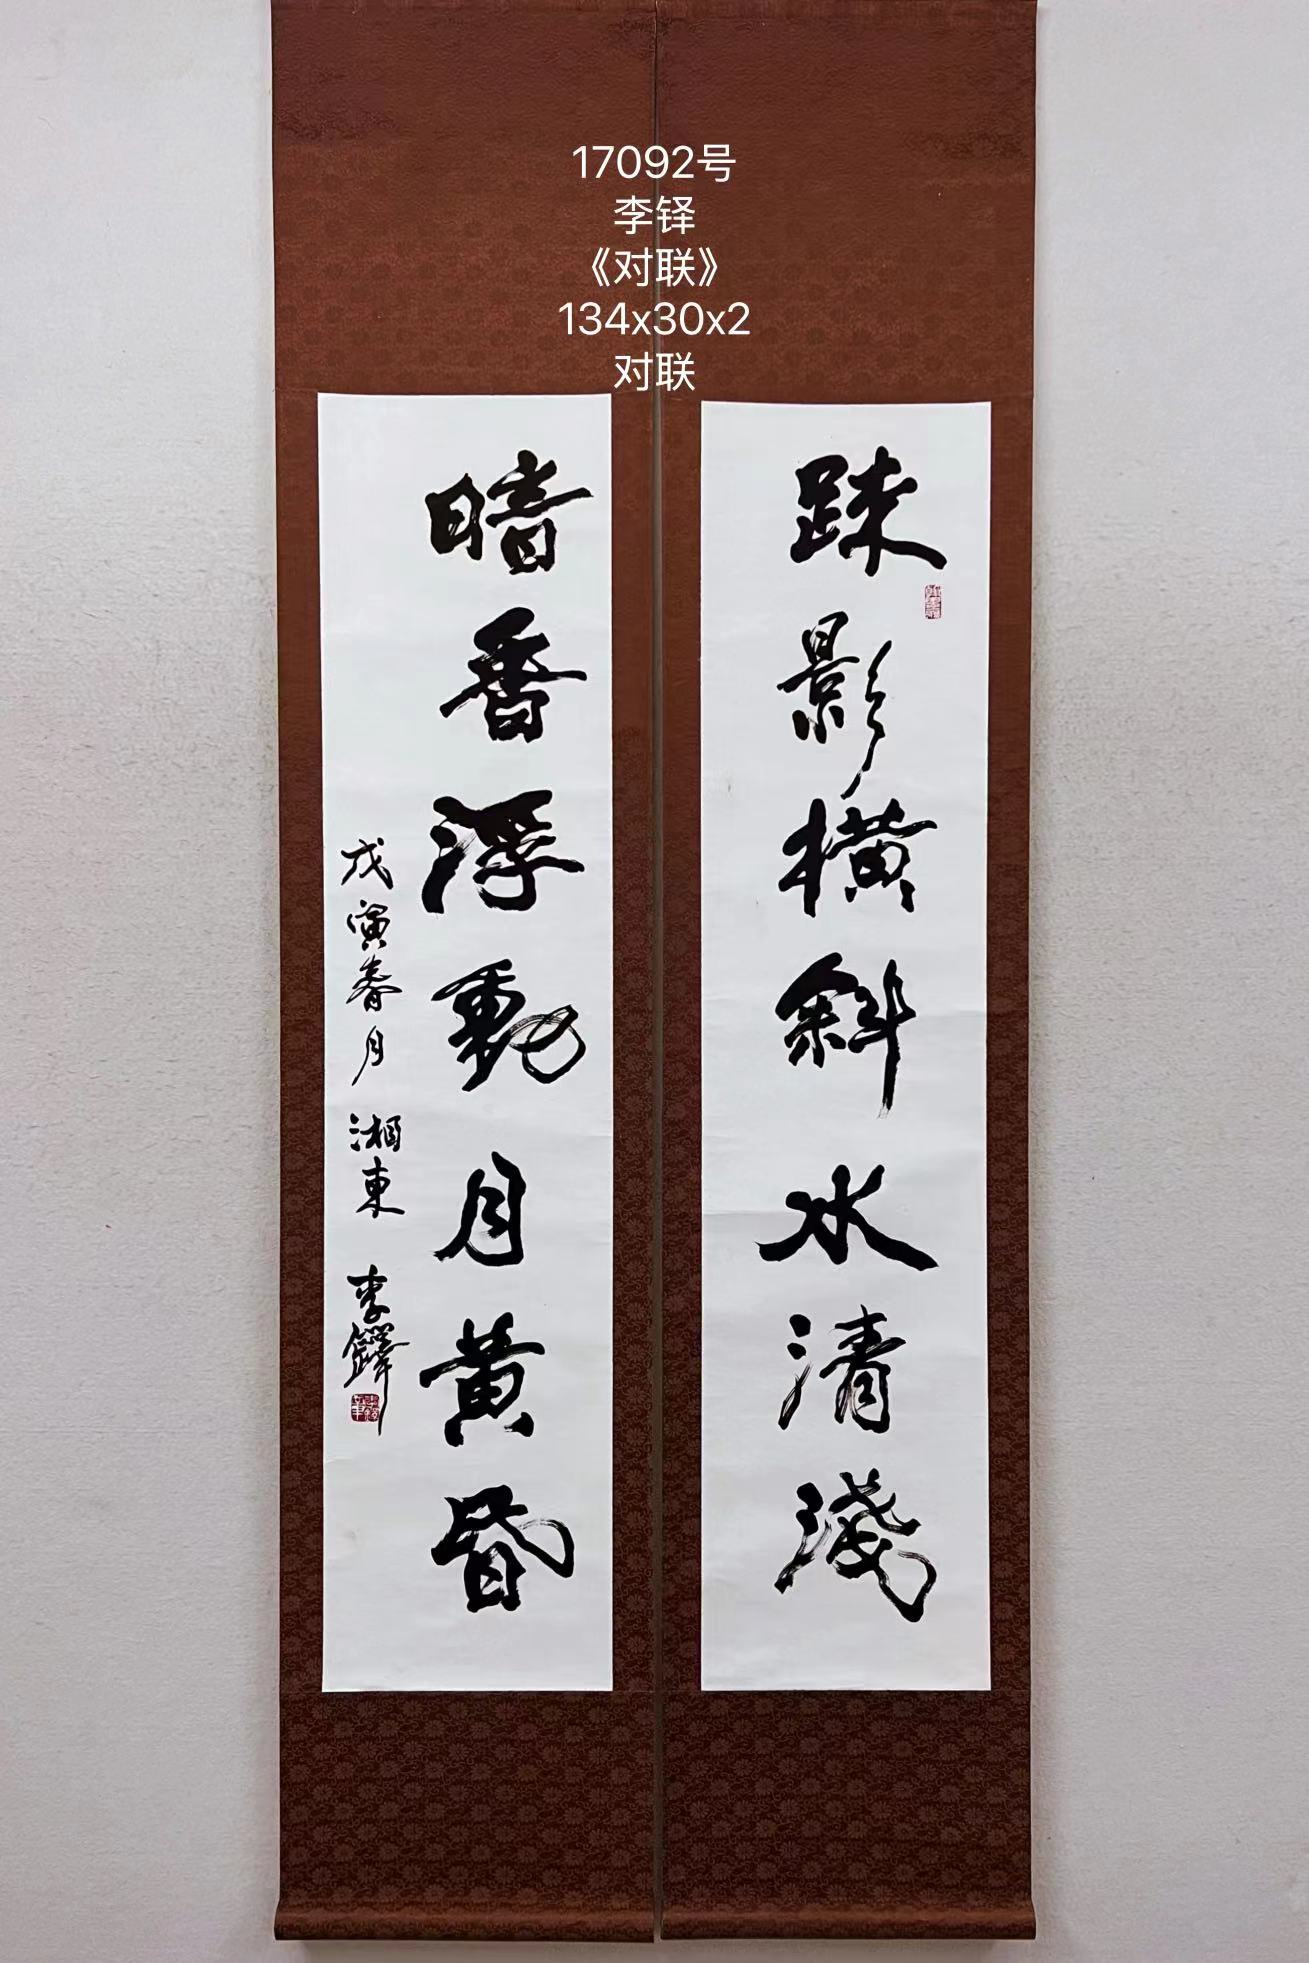 17092号
李铎
《对联》
134x30x2
对联
踈影橫斜水清淺
暗香浮動月黄昏
戊寅春月 湘東 李鐸